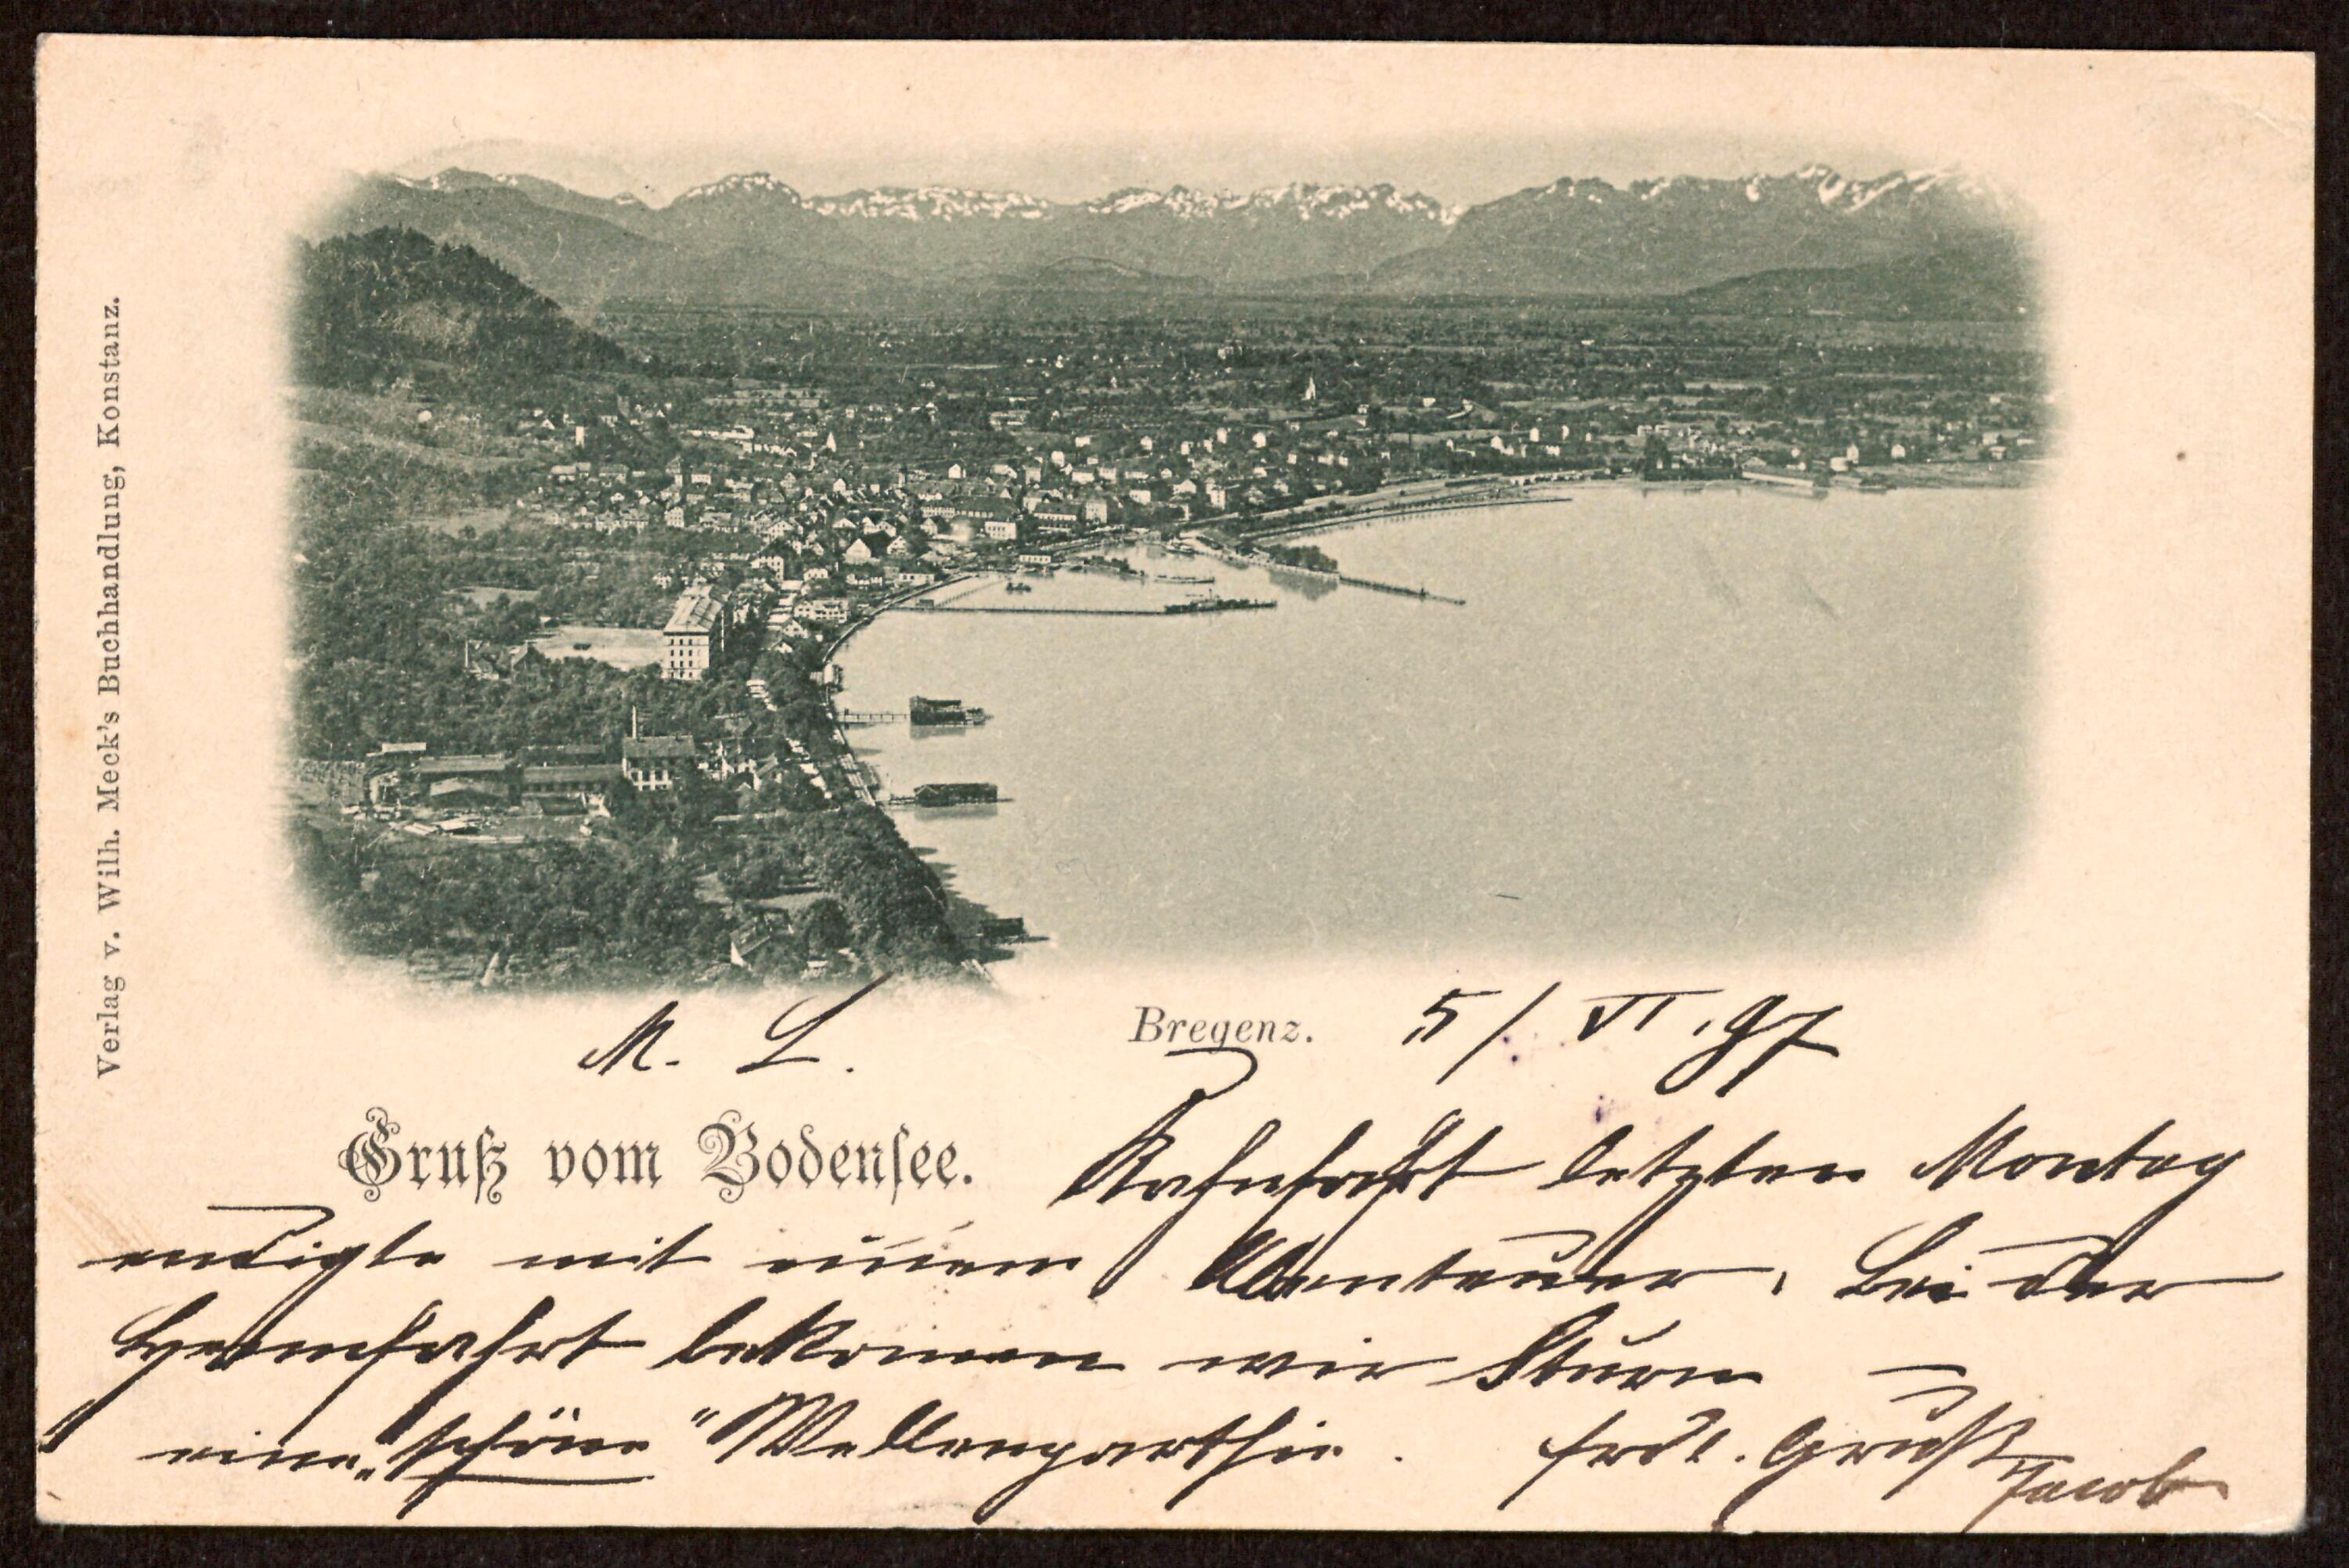 Verlag v. Wilh. Meck's Buchhandlung, Konstanz.
M. L.
Bregenz. 5/VI.97
Gruß vom Bodensee.
Kahnfahrt letzten Montag
endigte mit einem Abenteuer, bei der
Heimfahrt bekamen wir Sturm
eine „schöne" Wellenparthie. frdl. Gruß
Jacob